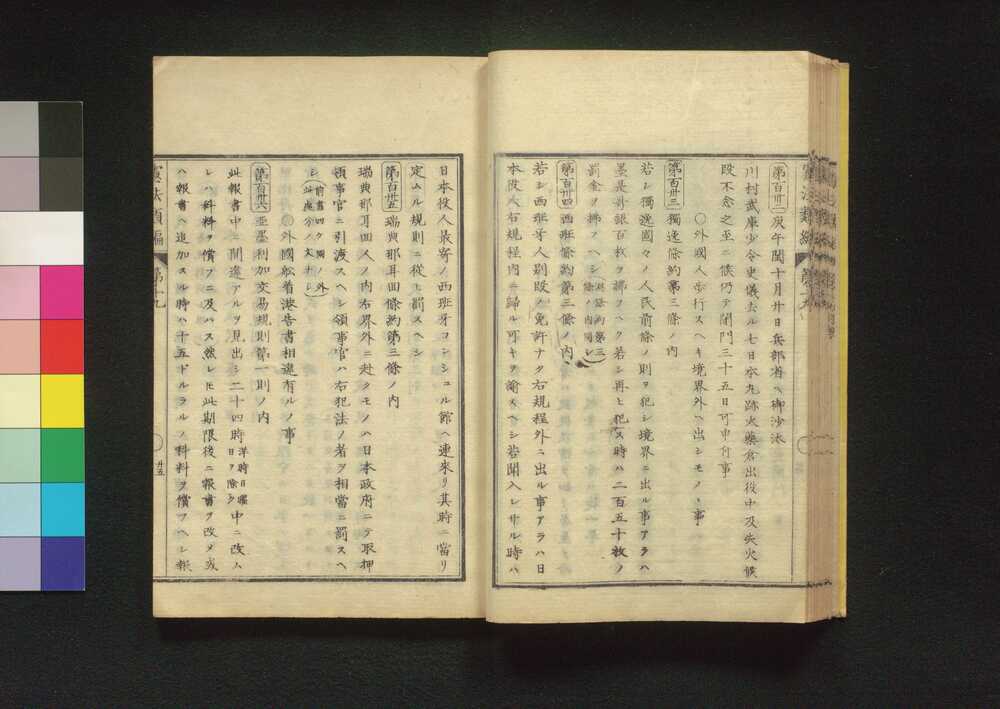 第百卅二 庚午閏十月廿日兵部省ヘ御沙汰
川村武庫少令史儀去ル七日本丸跡火藥倉出役中及失火候
段不念之至ニ候仍テ閉門三十五日可申付事
○外國人歩行スヘキ境界外ヘ出シモノヽ事
第百卅三 獨逸條約第三條ノ内
若シ獨逸國々ノ人民前條ノ則ヲ犯シ境界ニ出ル事アラハ
墨是哥銀百枚ヲ拂フヘク若シ再ヒ犯ス時ハ二百五十枚ノ
罰金ヲ拂フヘシ
第百卅四 西班條約第三條ノ内
若シ西班牙人別段ノ免許ナク右規程外ニ出ル事アラハ日
本役人右規程内ニ歸ル可キヲ諭スヘシ若聞入レサル時ハ
日本役人最寄ノ西班牙コンシュル館ヘ連來リ其時ニ當リ
定ムル規則ニ從ヒ罰スヘシ
第百卅五 瑞典那耳回條約第三條ノ内
瑞典那耳回人ノ内右界外ニ赴クモノハ日本政府ニテ取押
領事官ニ引渡スヘシ領事官ハ右犯法ノ者ヲ相當ニ罰スヘ
シ
○外國船着港告書相違有ルノ事
第百卅六 亜墨利加交易規則第一則ノ内
此報書中ニ間違アルヲ見出シ二十四時 洋時日曜日ヲ除ク 中ニ改ム
レハ科料ヲ償フニ及ハス然レ𪜈此期限後ニ報書ヲ改メ或
ハ報書ヘ追加スル時ハ十五ドルラルノ科料ヲ償フヘシ報
憲法類編
第十九
廿五